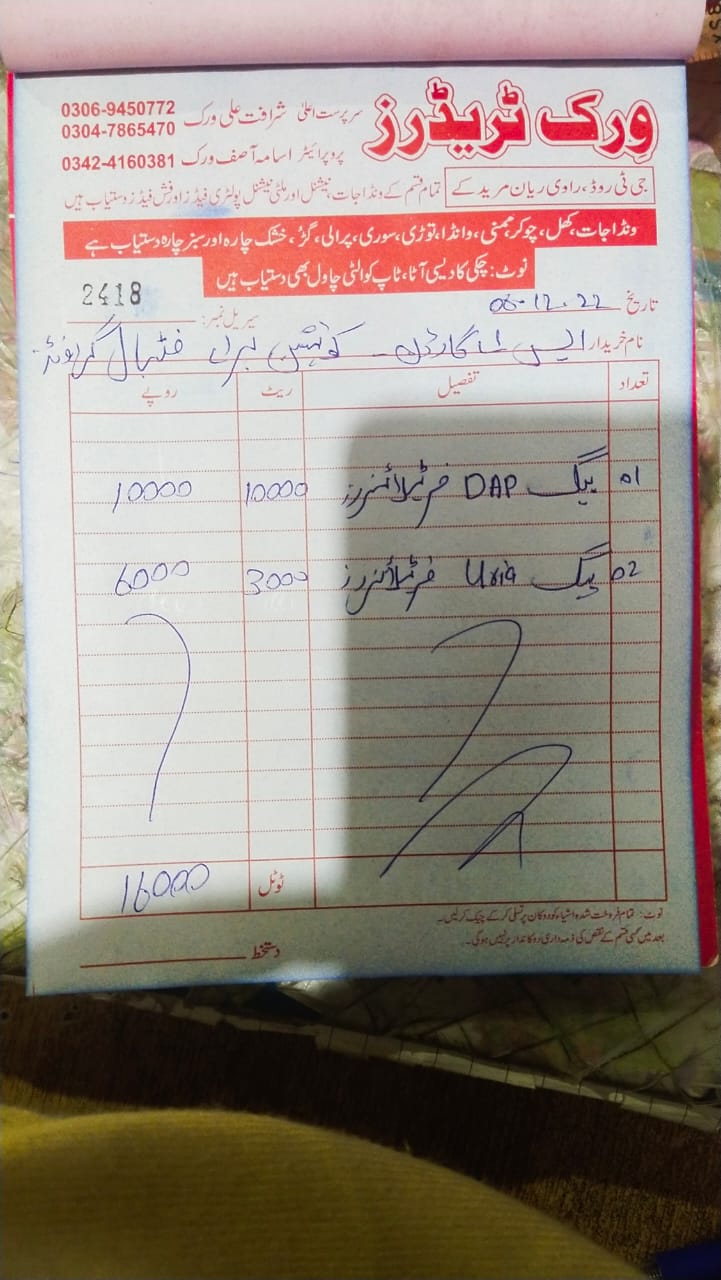 ورک ٹریڈرز
سرپرست اعلیٰ شرافت علی ورک 0306-9450772
0304-7865470
پروپرائیٹر اسامہ آصف ورک 0342-4160381
جی ٹی روڈ، راوی ریان مریدکے
تمام قسم کے ونڈا جات، نیشنل اور ملٹی نیشنل پولٹری فیڈز اور فش فیڈز دستیاب ہیں
ونڈا جات، کھل، چوکر، وانڈا، توڑی، سوری، پرالی، گڑ، خشک چارہ اور سبز چارہ دستیاب ہے
نوٹ: چکی کا دیسی آٹا، ٹاپ کوالٹی چاول بھی دستیاب ہیں
تاریخ 06-12-22
سیریل نمبر: 2418
نام خریدار ایس گارڈن فٹبال گراونڈ
تعداد تفصیل ریٹ روپے
01 بیگ DAP فرٹیلائزرز 10000 10000
02 بیگ Uria فرٹیلائزرز 3000 6000
ٹوٹل 16000
نوٹ: تمام فروخت شدہ اشیاء کو دوکان پر تسلی کر کے چیک کر لیں۔
بعد میں کسی قسم کے نقص کی ذمہ داری دوکاندار پر نہیں ہو گی۔
دستخط